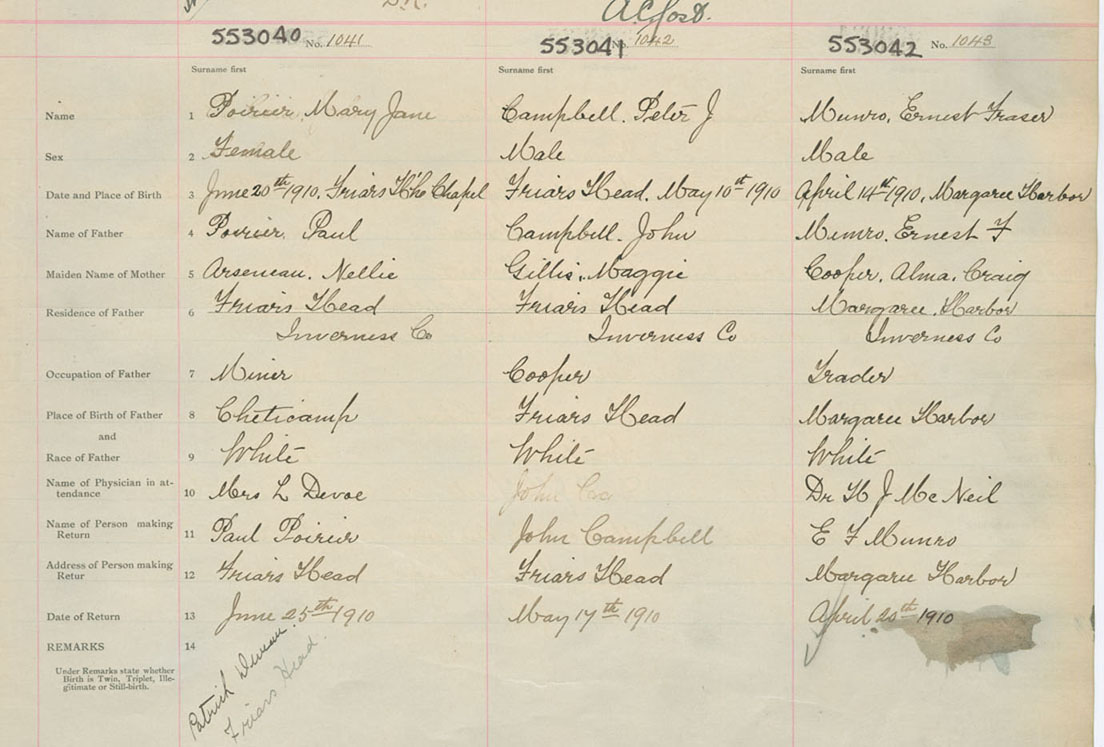 A.C. Jost.
553040 No. 1041 553041 No. 1042 553042 No. 1043
Surname first Surname first Surname first
Name 1 Poirier, Mary Jane Campbell. Peter J Munro, Ernest Fraser
Sex 2 Female Male Male
Date and Place of Birth 3 June 20th 1910, Friars Hd Chapel Friars Head. May 10th 1910 April 14th 1910, Margaree Harbor
Name of Father 4 Poirier. Paul Campbell. John Munro. Ernest F
Maiden Name of Mother 5 Arseneau. Nellie Gillis. Maggie Cooper. Alma. Craig
Residence of Father 6 Friars Head Friars Head Margaree. Harbor
Inverness Co Inverness Co Inverness Co
Occupation of Father 7 Miner Cooper Trader
Place of Birth of Father 8 Cheticamp Friars Head Margaree Harbor
and
Race of Father 9 White White White
Name of Physician in at-
tendance 10 Mrs L Devoe John Dr H J McNeil
Name of Person making
Return 11 Paul Poirier John Campbell E F Munro
Address of Person making
Retur 12 Friars Head Friars Head Margaree Harbor
Date of Return 13 June 25th 1910 May 17th 1910 April 20th 1910
REMARKS 14
Under Remarks state whether
Birth is Twin, Triplet, Ille-
gitimate or Still-birth.
Patrick
Friars Head